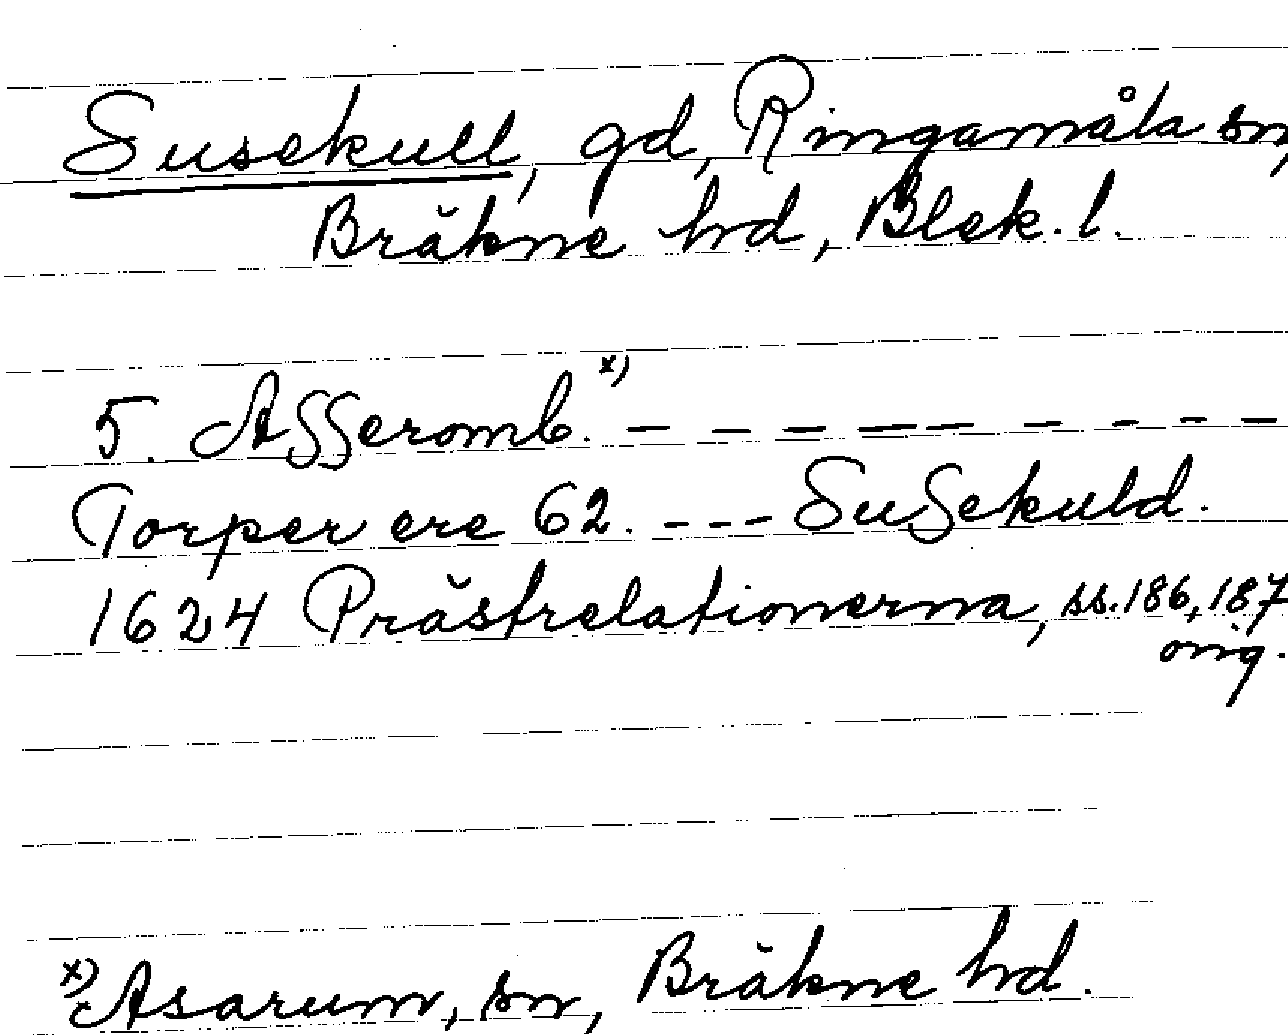 Susekull, gd, Ringamåla sn,
Bräkne hd, Blek. l.
5. Asseromb. x) — — — — — — — — —
Torper ere 62. --- Susekuld.
1624 Prästrelationerna, ss. 186, 187
orig.
x) Asarum, sn, Bräkne hd.